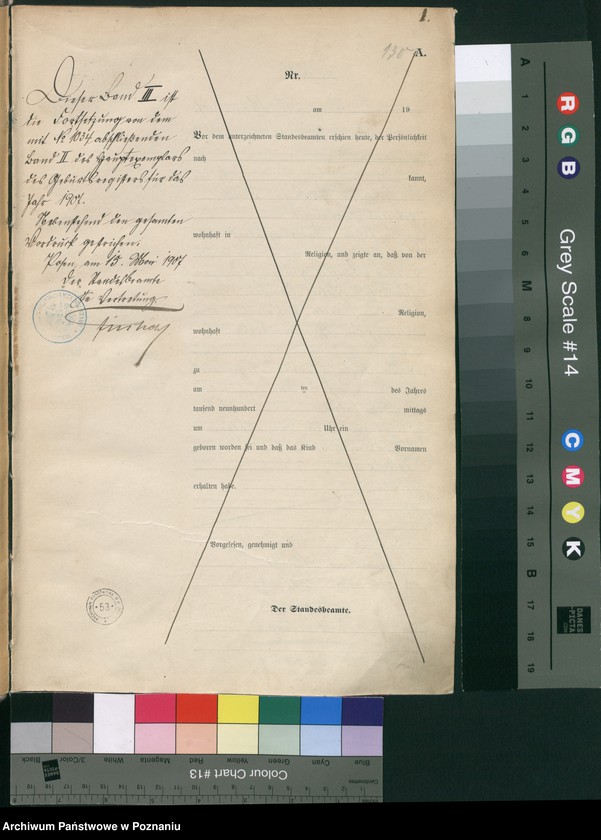 1.
130
A.
Nr.
Dieser Band III ist
die Fortsetzung von dem
mit № 1034 abschließenden
Band II des Hauptexemplars
des Geburtsregisters für das
Jahr 1907.
Nebenstehend den gesamten
Vordruck gestrichen.
Posen, am 13. Mai 1907
Der Standesbeamte
In Vertretung
am 19
Vor dem unterzeichneten Standesbeamten erschien heute, der Persönlichkeit
nach
kannt,
wohnhaft in
Religion, und zeigte an, daß von der
Religion,
wohnhaft
zu
am ten des Jahres
tausend neunhundert mittags
um Uhr ein
geboren worden sei und daß das Kind Vornamen
erhalten habe.
Vorgelesen, genehmigt und
Der Standesbeamte.
53
A 1 2 3 4 5 6 M 8 9 10 11 12 13 14 15 B 17 18 19
R G B
Grey Scale #14
C M Y K
DANES
PICTA
.COM
Black 3/Color White Magenta Red Yellow Green Cyan Blue
Colour Chart #13
Centimetres
Archiwum Państwowe w Poznaniu